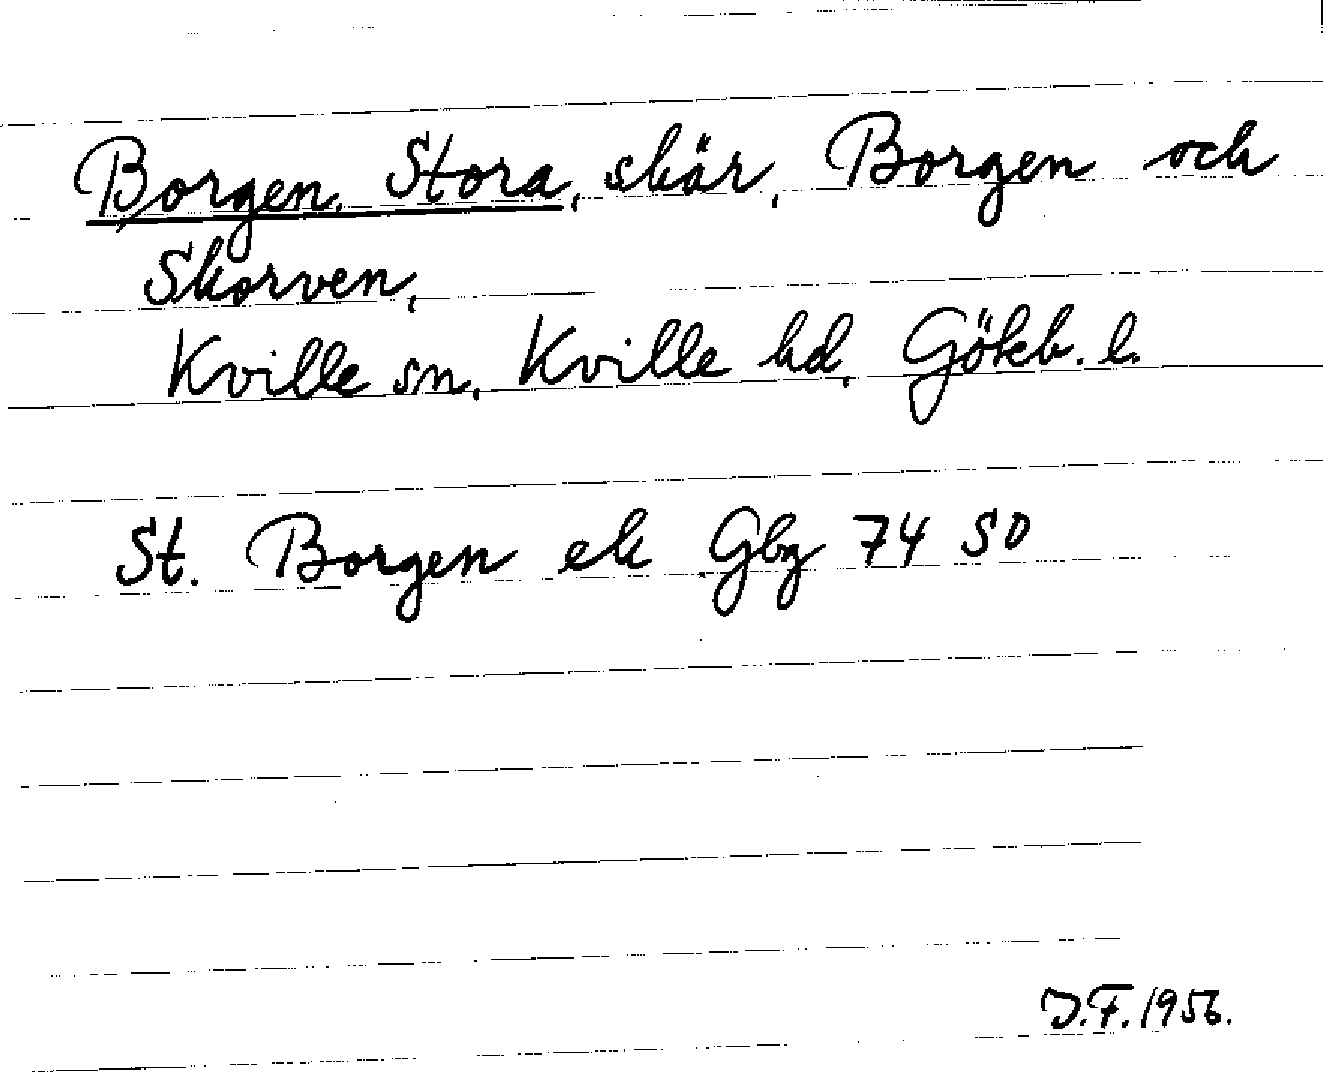 Borgen, Stora, skär, Borgen och
Skorven,
Kville sn, Kville hd, Göteb. l.
St. Borgen ek Gbg 74 SO
J.F. 1956.